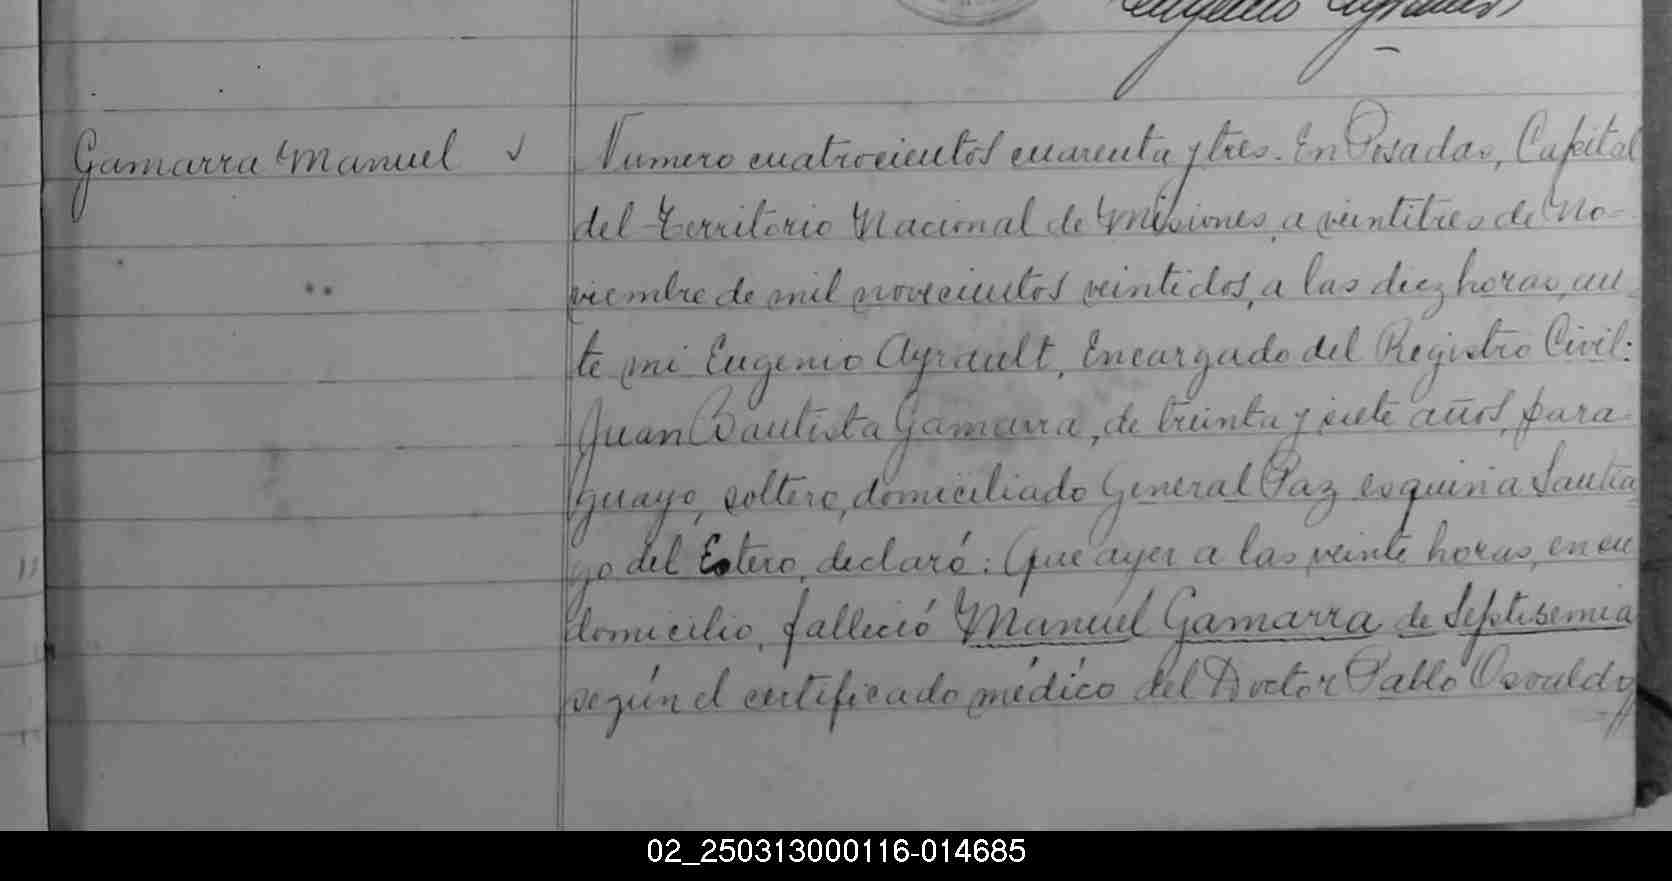 Eugenio Ayrault
Gamarra Manuel √ Numero cuatrocientos cuarenta y tres. En Posadas, Capital
del Territorio Nacional de Misiones, a veintitres de No-
viembre de mil novecientos veintidos, a las diez horas, an-
te mi Eugenio Ayrault, Encargado del Registro Civil:
Juan Bautista Gamarra, de treinta y siete años, para-
guayo, soltero, domiciliado General Paz esquina Santia
go del Estero, declaró: Que ayer a las veinte horas, en su
domicilio, falleció Manuel Gamarra de Septisemia
según el certificado médico del Doctor Pablo Osvaldo
02_250313000116-014685